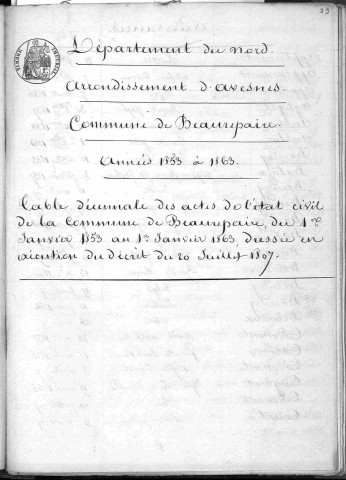 39
Département du Nord.
Arrondissement d'Avesnes.
Commune de Beaurepaire.
Années 1853 à 1863.
Table décennale des actes de l'état civil
de la Commune de Beaurepaire, du 1er
Janvier 1853 au 1er Janvier 1863, dressée en
exécution du décret du 20 Juillet 1807.